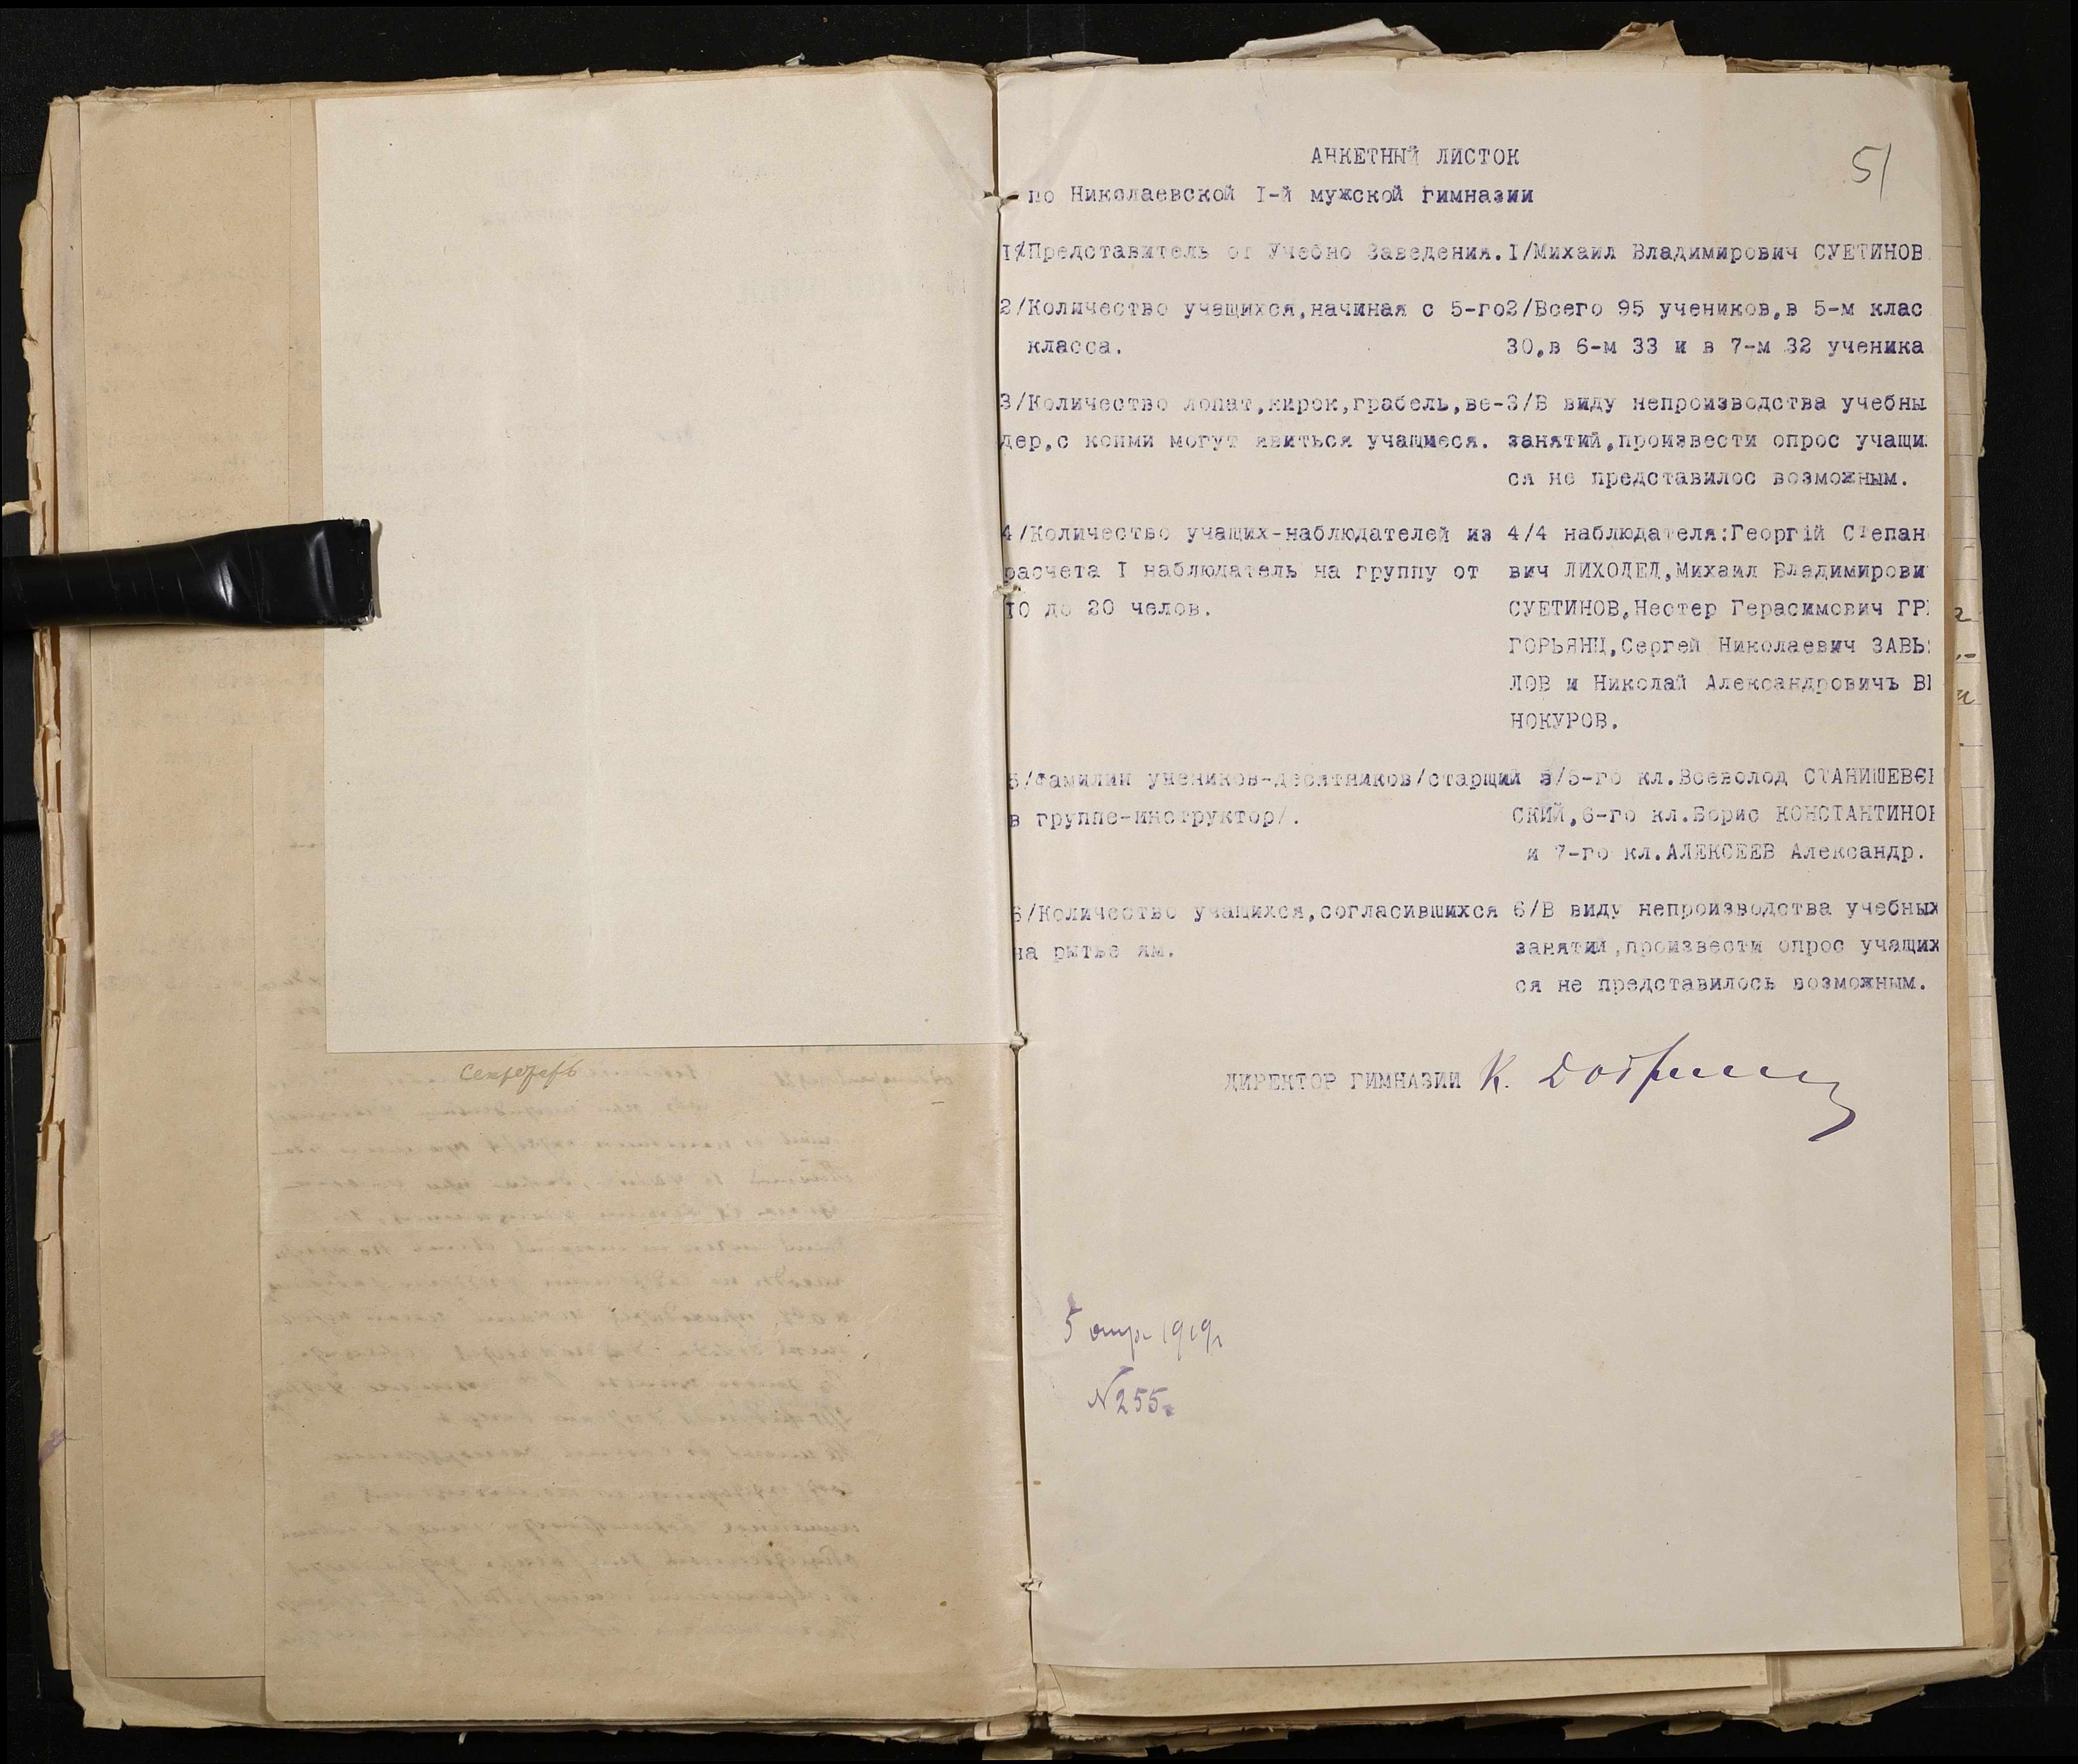 51
АНКЕТНЫЙ ЛИСТОК
по Николаевской I-й мужской гимназии
1/Представитель от Учебно Заведения. I/Михаил Владимирович СУЕТИНОВ
2/Количество учащихся,начиная с 5-го 2/Всего 95 учеников,в 5-м клас
класса. 30,в 6-м 33 и в 7-м 32 ученика
3/Количество лопат,кирок,грабель,ве- 3/В виду непроизводства учебны
дер,с коими могут явиться учащиеся. занятий,произвести опрос учащи
ся не представилос возможным.
4/Количество учащих-наблюдателей из 4/4 наблюдателя:Георгій Степан
расчета I наблюдатель на группу от вич ЛИХОДЕД,Михаил Владимирови
10 до 20 челов. СУЕТИНОВ,Нестер Герасимович ГР
ГОРЬЯНЦ,Сергей Николаевич ЗАВЬ
ЛОВ и Николай Александровичъ В
НОКУРОВ.
5/Фамилии учеников-десятников/старщий 5/5-го кл.Всеволод СТАНИШЕВЕ
в группе-инструктор/. СКИЙ,6-го кл.Борис КОНСТАНТИНО
и 7-го кл.АЛЕКСЕЕВ Александр.
6/Количество учащихся,согласившихся 6/В виду непроизводства учебных
на рытье ям. занятий,произвести опрос учащих
ся не представилось возможным.
ДИРЕКТОР ГИМНАЗИИ К.
Секретарь
5 апр. 1919г
N 255.